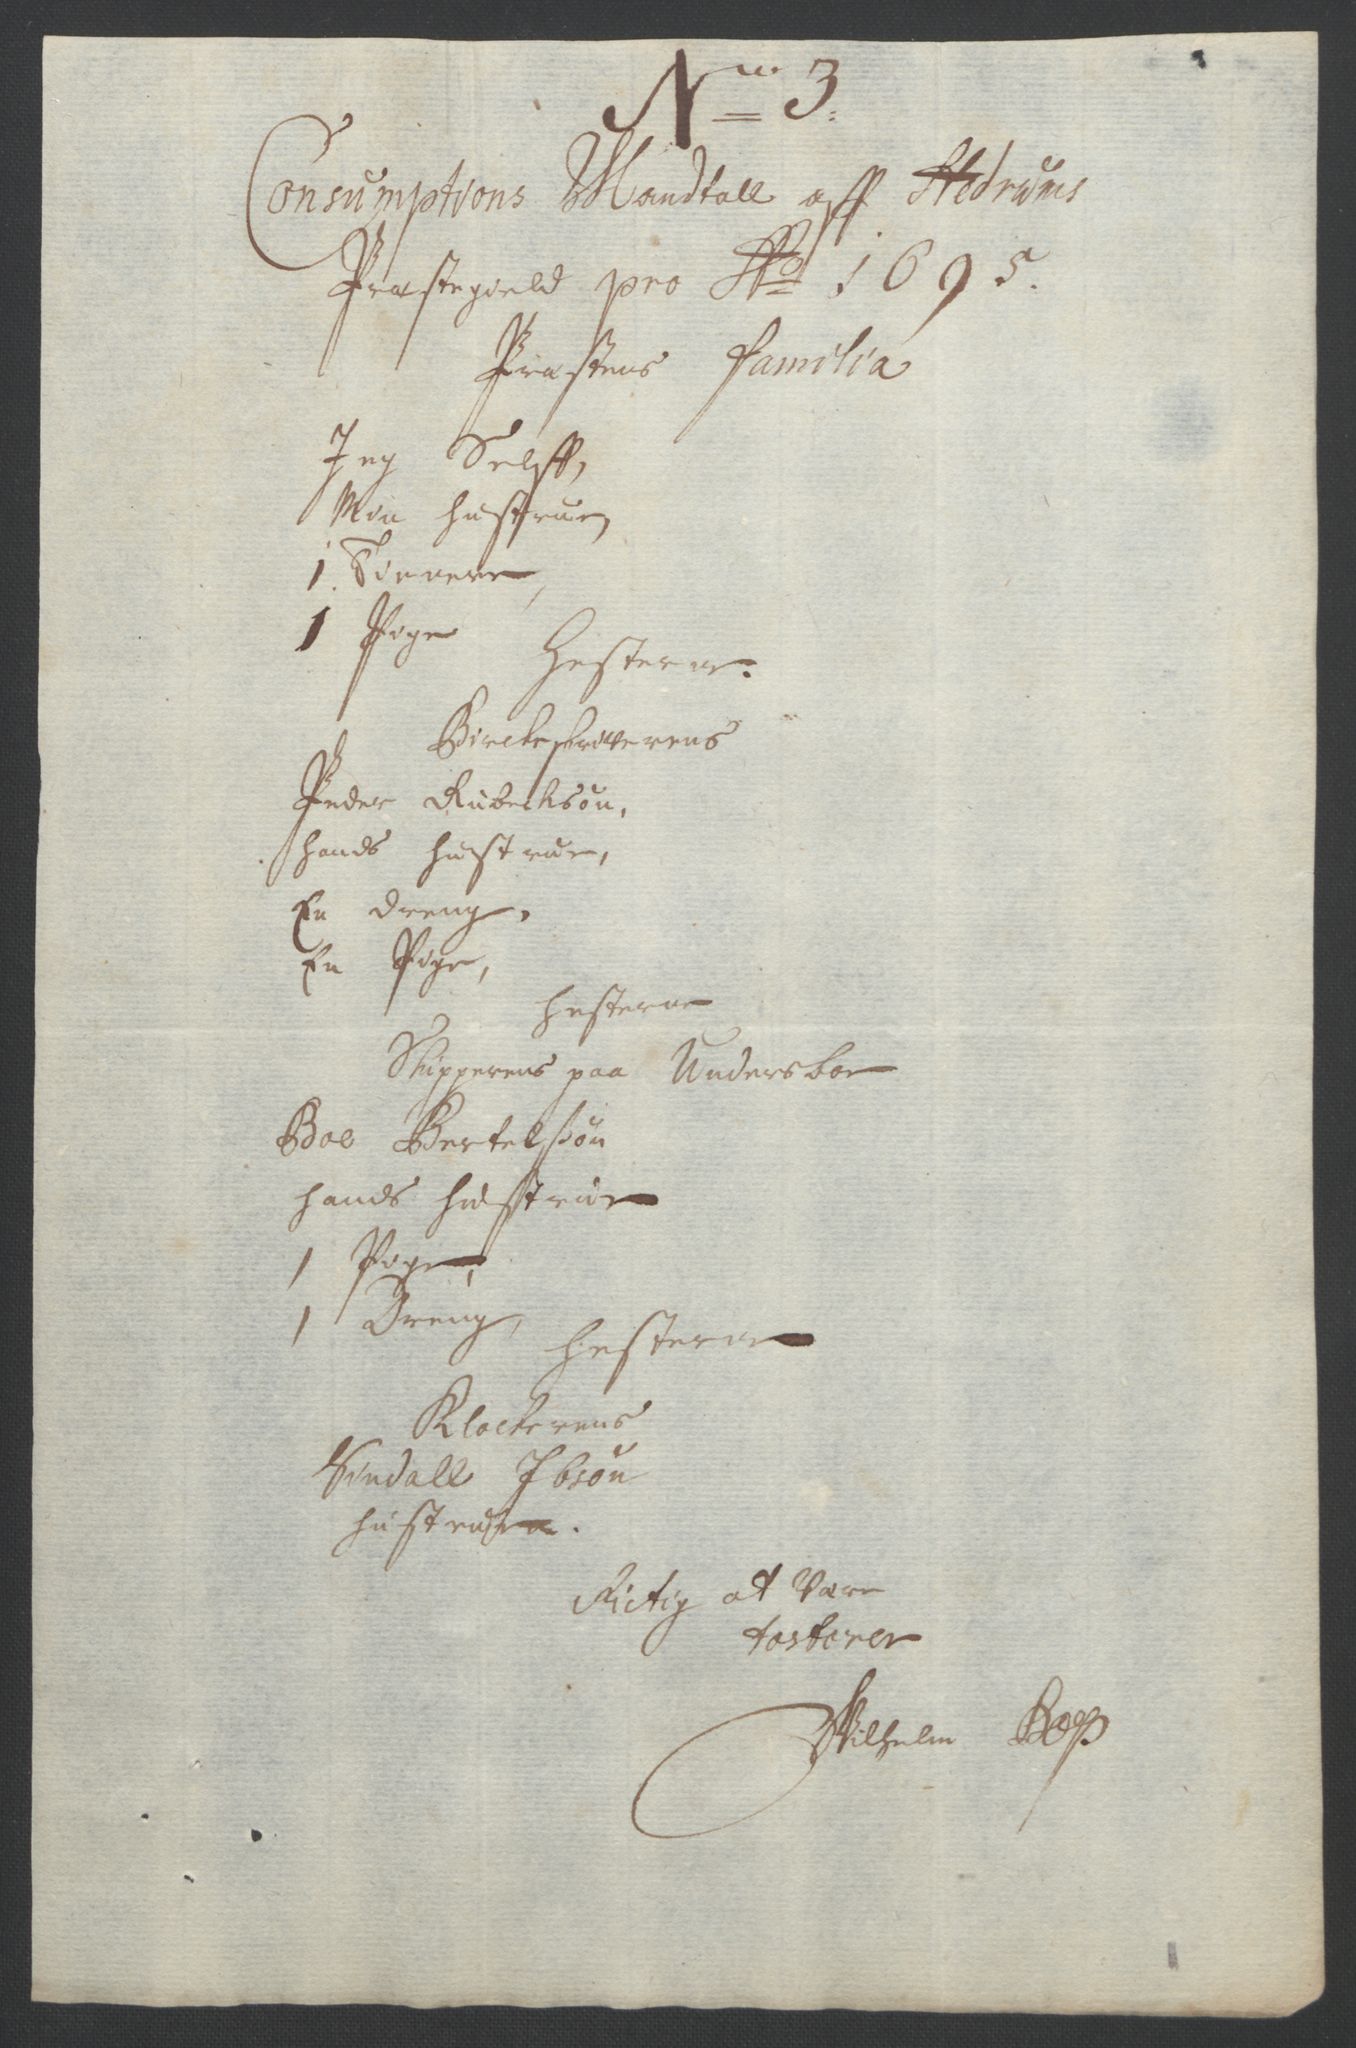 No 3.
Consumptions Mandtall aff Hedrums
Præstegield pro Ao 1695.
Præstens familia
Jeg Selff,
Min hustrue,
1 Tienere,
1 Pige
Hesterne.
Birckeskriverens
Peder Rubechsøn,
hands hustrue,
En dreng,
En Pige,
hesterne
Skipperens paa Undersboe
Boe Bertelsøn
hands hustrue
1 Pige,
1 Dreng,
hesterne
Klockerens
Sindall Ibsøn
hustruen.
Rictig at være
testerer
Wilhelm